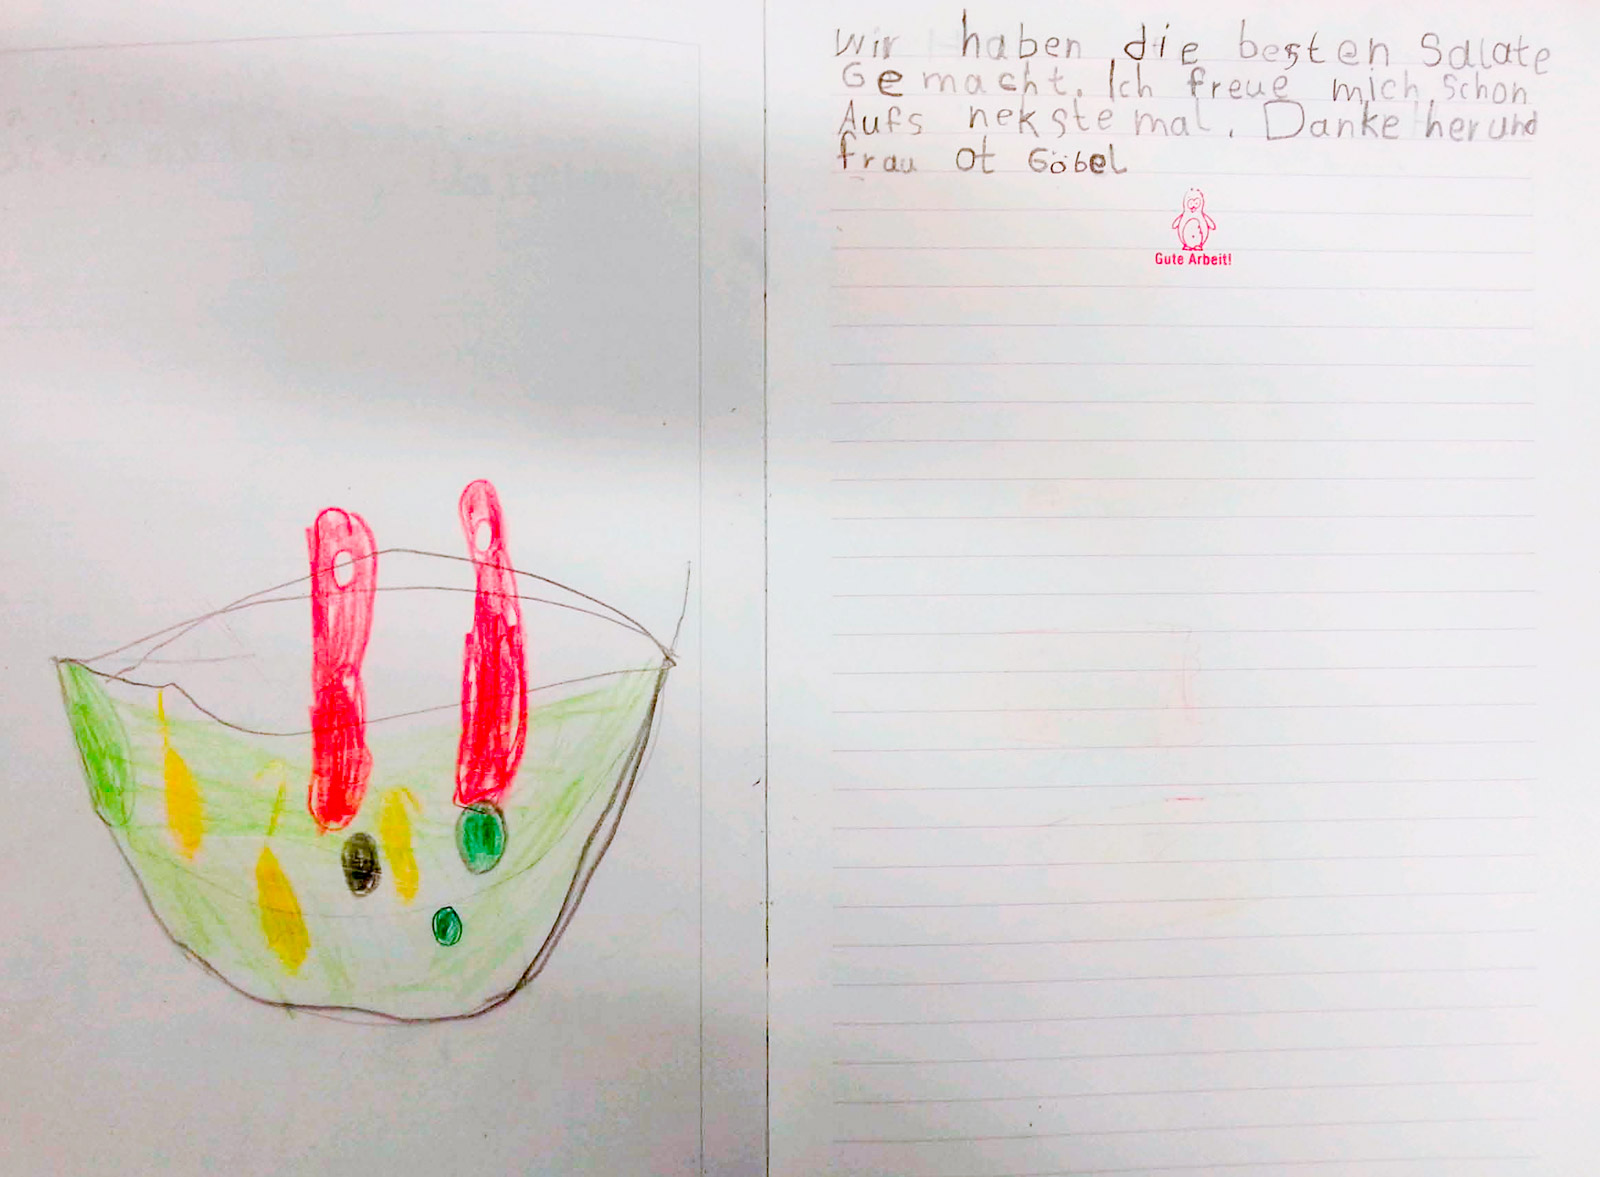 Wir haben die besten Salate
Gemacht. Ich freue mich schon
Aufs nekste mal. Danke her und
frau Ot Göbel
Gute Arbeit!